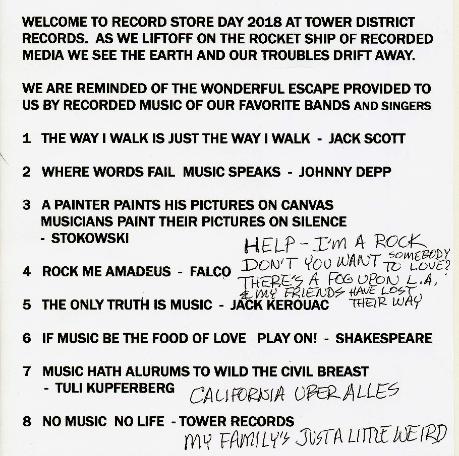 WELCOME TO RECORD STORE DAY 2018 AT TOWER DISTRICT
RECORDS. AS WE LIFTOFF ON THE ROCKET SHIP OF RECORDED
MEDIA WE SEE THE EARTH AND OUR TROUBLES DRIFT AWAY.
WE ARE REMINDED OF THE WONDERFUL ESCAPE PROVIDED TO
US BY RECORDED MUSIC OF OUR FAVORITE BANDS AND SINGERS
1 THE WAY I WALK IS JUST THE WAY I WALK - JACK SCOTT
2 WHERE WORDS FAIL MUSIC SPEAKS - JOHNNY DEPP
3 A PAINTER PAINTS HIS PICTURES ON CANVAS
MUSICIANS PAINT THEIR PICTURES ON SILENCE
- STOKOWSKI
HELP - I'M A ROCK
DON'T YOU WANT SOMEBODY
TO LOVE?
4 ROCK ME AMADEUS - FALCO
THERE'S A FOG UPON L.A,
& MY FRIENDS HAVE LOST
THEIR WAY
5 THE ONLY TRUTH IS MUSIC - JACK KEROUAC
6 IF MUSIC BE THE FOOD OF LOVE PLAY ON! - SHAKESPEARE
7 MUSIC HATH ALURUMS TO WILD THE CIVIL BREAST
- TULI KUPFERBERG
CALIFORNIA UBER ALLES
8 NO MUSIC NO LIFE - TOWER RECORDS
MY FAMILY'S JUST A LITTLE WEIRD